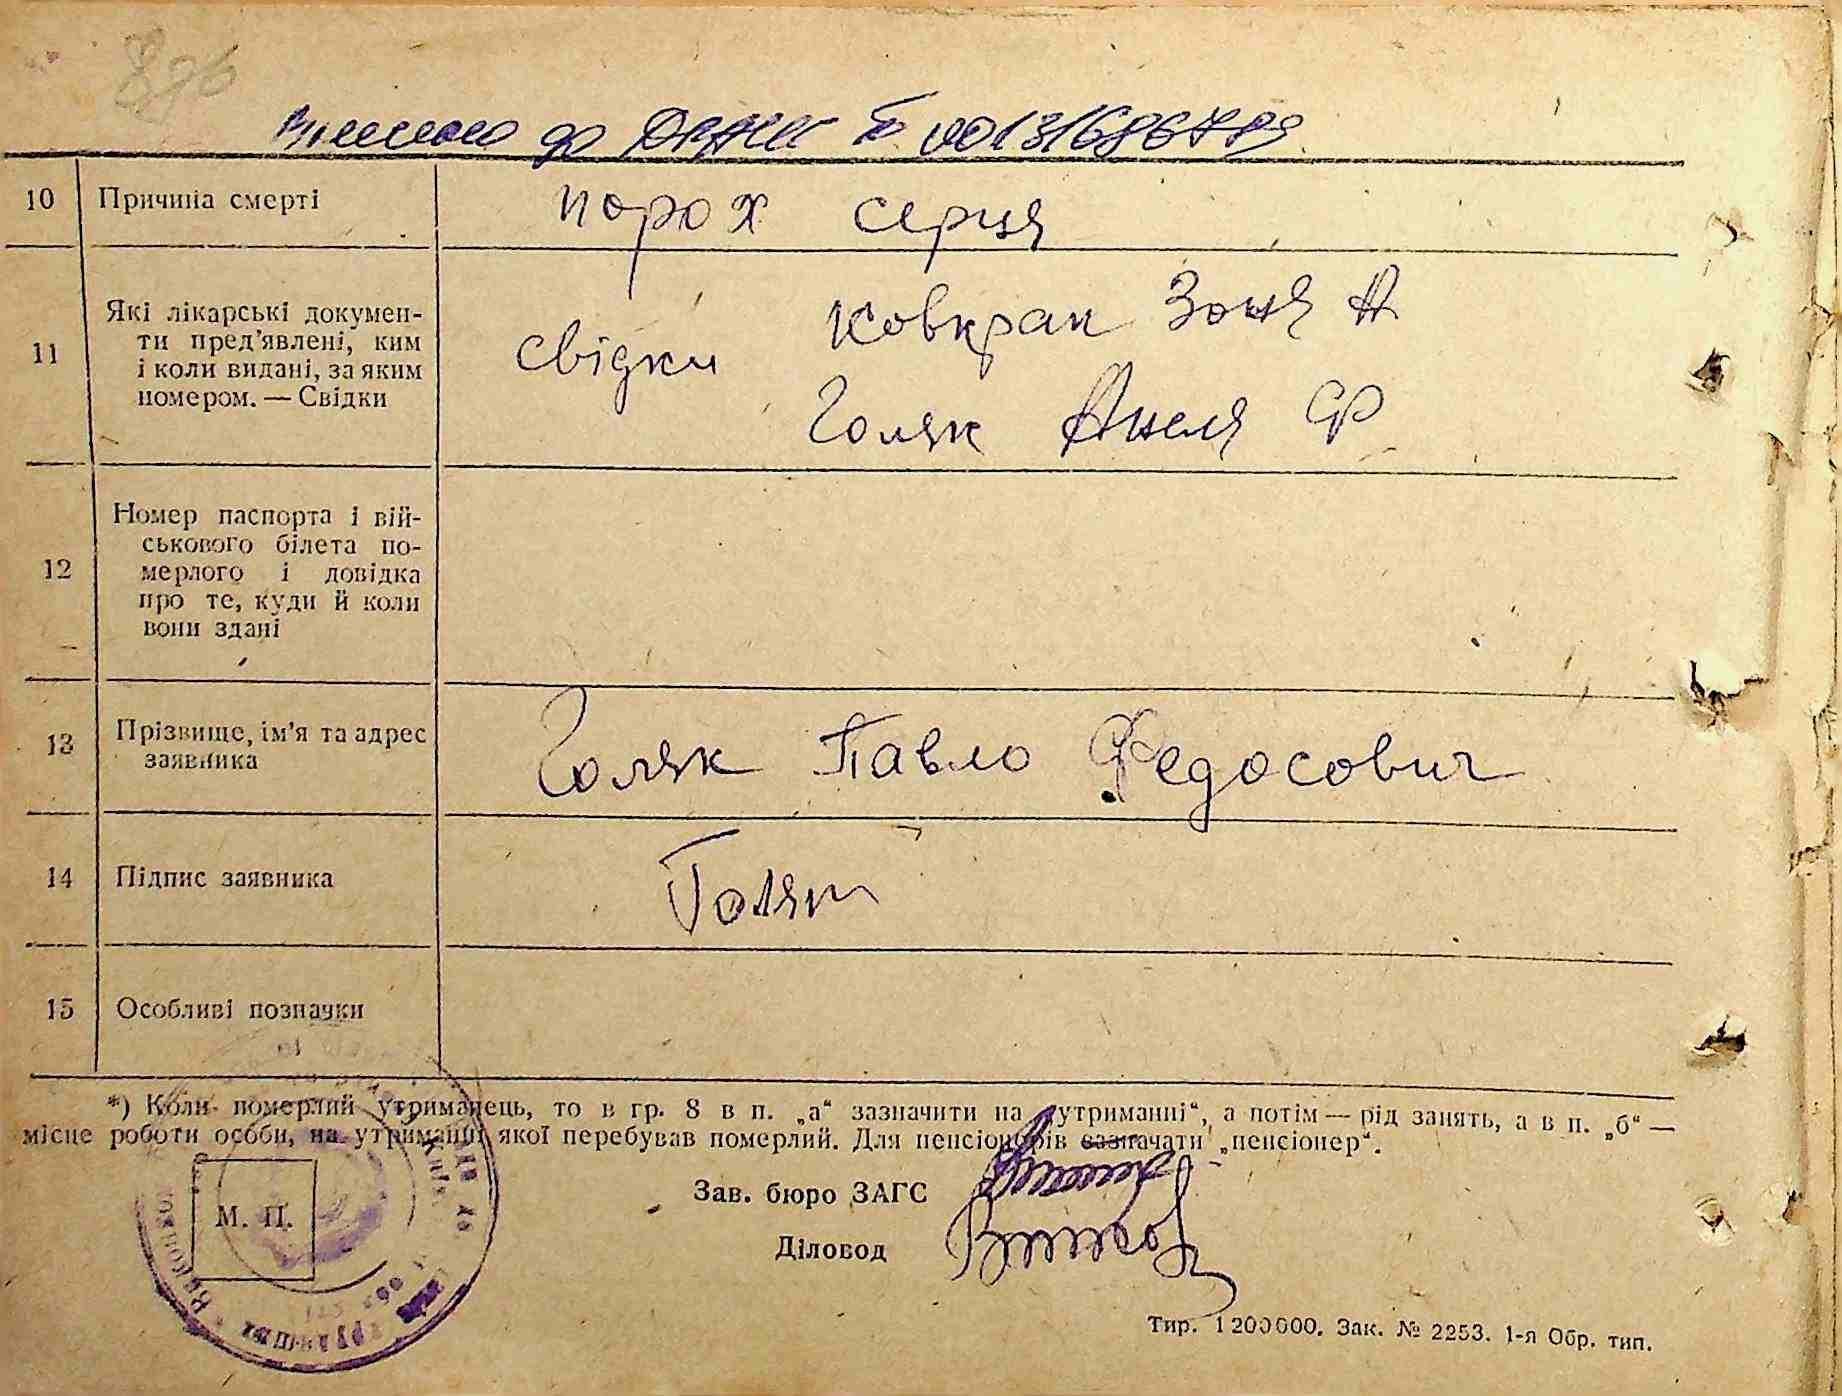 896
до ДРАЦС № 00131686789
10 Причина смерті порох серця
11 Які лікарські докумен-
ти пред'явлені, ким
і коли видані, за яким
номером. — Свідки
свідки Ковкрак Зоня А
Голяк Анеля Ф
12 Номер паспорта і вій-
ськового білета по-
мерлого і довідка
про те, куди й коли
вони здані
13 Прізвище, ім'я та адрес
заявника
Голяк Павло Федосович
14 Підпис заявника Голяк
15 Особливі позначки
*) Коли померлий утриманець, то в гр. 8 в п. „а“ зазначити на „утриманні“, а потім — рід занять, а в п. „б“ —
місце роботи особи, на утриманні якої перебував померлий. Для пенсіонерів зазначати „пенсіонер“.
М. П.
Зав. бюро ЗАГС
Діловод
Тир. 1200000. Зак. № 2253. 1-я Обр. тип.